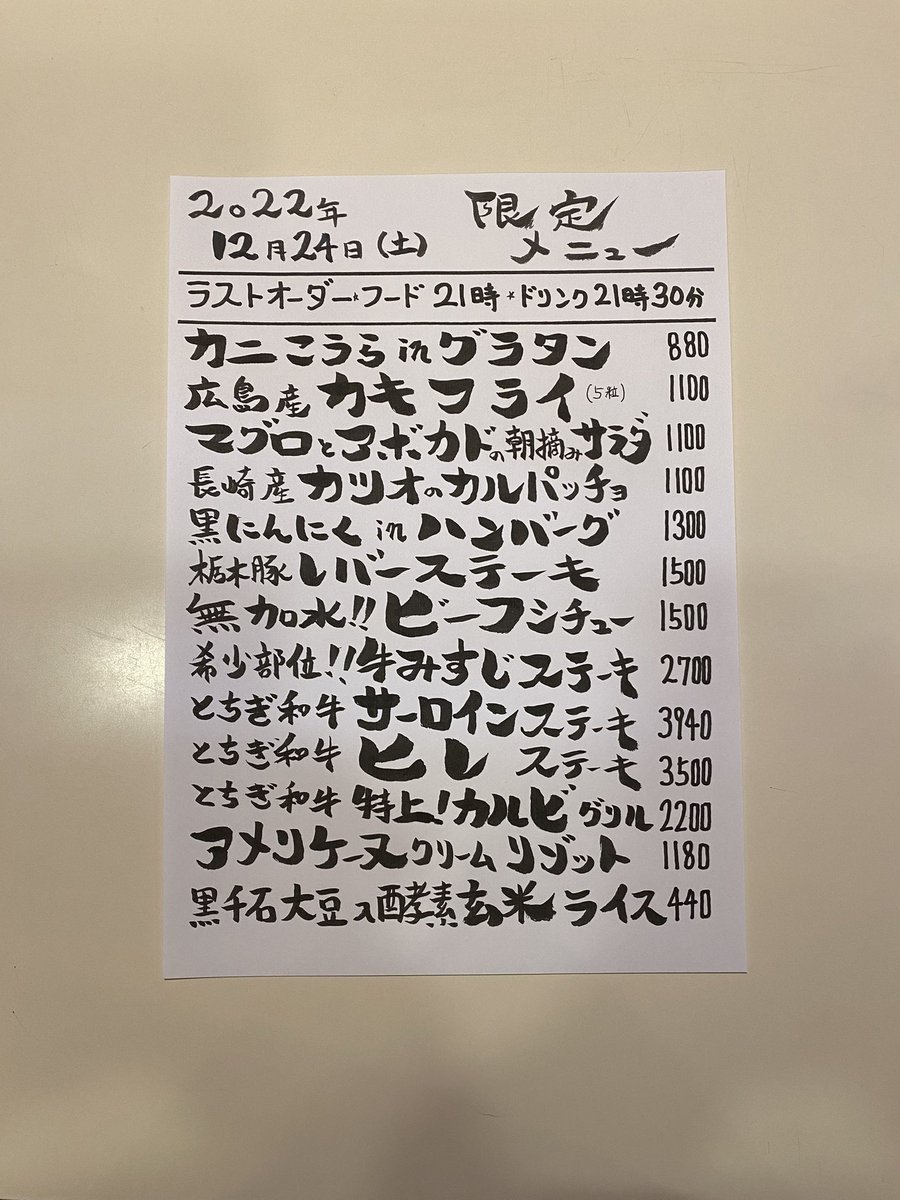 2022年 限定
12月24日(土) メニュー
ラストオーダー★フード 21時 ★ドリンク 21時30分
カニこうら in グラタン 880
広島産 カキフライ (5粒) 1100
マグロとアボカドの朝摘みサラダ 1100
長崎産 カツオのカルパッチョ 1100
黒にんにく in ハンバーグ 1300
栃木豚 レバーステーキ 1500
無加水!! ビーフシチュー 1500
希少部位!! 牛みすじステーキ 2700
とちぎ和牛 サーロインステーキ 3940
とちぎ和牛 ヒレ ステーキ 3500
とちぎ和牛 特上!カルビグリル 2200
アメリケーヌクリームリゾット 1180
黒千石大豆入酵素玄米ライス 440